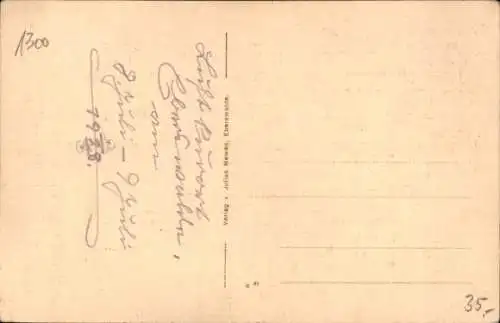 1300
Luft Kurort
Eberswalde,
am
8 Juli - 9 Juli
1928.
Verlag v. Julius Mewes, Eberswalde.
35,-